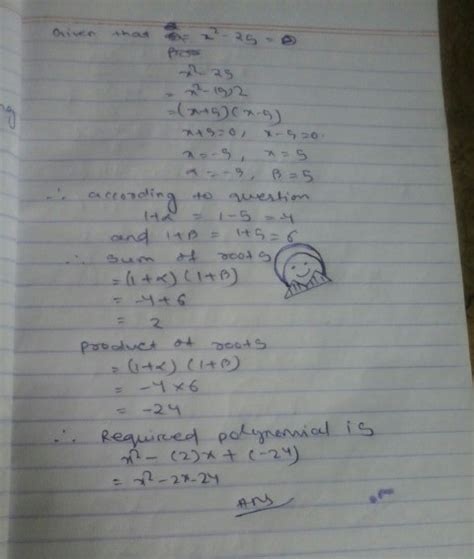 Given that = x² - 25 = 0
x² - 25
= x² - (5)2
= (x+5) (x-5)
x+5=0, x-5=0
x=-5, x=5
α=-5, β=5
∴ according to question
1+α = 1-5 = -4
and 1+β = 1+5 = 6
∴ sum of roots
= (1+α) (1+β)
= -4+6
= 2
product of roots
= (1+α) (1+β)
= -4×6
= -24
∴ Required polynomial is
x² - (2)x + (-24)
= x² - 2x - 24
Ans